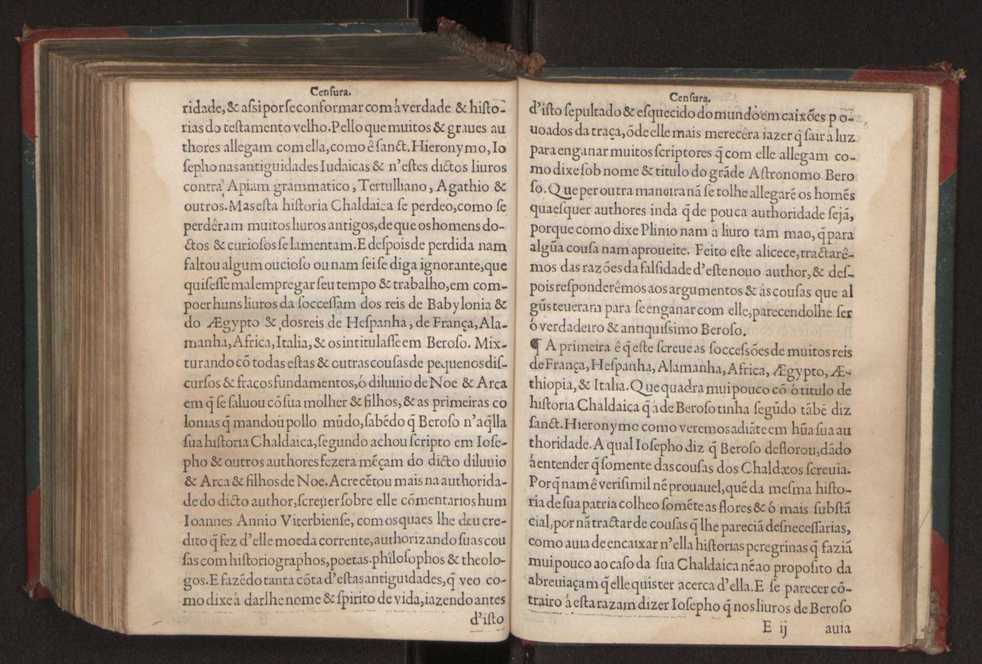 Censura.
ridade, & aſsi por ſe conformar com á verdade & hiſto-
rias do teſtamento velho. Pello que muitos & graues au
thores allegam com ella, como ê ſanct. Hieronymo, Io
ſepho nas antiguidades Iudaicas & n'eſtes dictos liuros
contra Apiam grammatico, Tertulliano, Agathio &
outros. Mas eſta hiſtoria Chaldaica ſe perdeo, como ſe
perdêram muitos liuros antigos, de que os homens do-
ctos & curioſos ſe lamentam. E deſpois de perdida nam
faltou algum oucioſo ou nam ſei ſe diga ignorante, que
quiſeſſe mal empregar ſeu tempo & trabalho, em com-
poer huns liuros da ſocceſſam dos reis de Babylonia &
do Ægypto & dos reis de Heſpanha, de França, Ala-
manha, Africa, Italia, & os intitulaſſe em Beroſo. Mix-
turando cõ todas eſtas & outras couſas de pequenos diſ-
curſos & fracos fundamentos, ó diluuio de Noe & Arca
em q̃ ſe ſaluou cõ ſua molher & filhos, & as primeiras co
lonias q̃ mandou pollo mũdo, ſabẽdo q̃ Beroſo n'aq̃lla
ſua hiſtoria Chaldaica, ſegundo achou ſcripto em Ioſe-
pho & outros authores fezera mẽçam do dicto diluuio
& Arca & filhos de Noe. Acrecẽtou mais na authorida-
de do dicto author, ſcreuer ſobre elle cõmentarios hum
Ioannes Annio Viterbienſe, com os quaes lhe deu cre-
dito q̃ fez d'elle moeda corrente, authorizando ſuas cou
ſas com hiſtoriographos, poetas, philoſophos & theolo-
gos. E fazẽdo tanta cõta d'eſtas antiguidades, q̃ veo co-
mo dixe á darlhe nome & ſpirito de vida, iazendo antes
d'iſto
Cenſura.
d'iſto ſepultado & eſquecido do mundo em caixões po-
uoados da traça, õde elle mais merecêra iazer q̃ ſair á luz
para enganar muitos ſcriptores q̃ com elle allegam co-
mo dixe ſob nome & titulo do grãde Aſtronomo Bero
ſo. Que per outra maneira nã ſe tolhe allegarẽ os homẽs
quaeſquer authores inda q̃ de pouca authoridade ſejã,
porque como dixe Plinio nam â liuro tam mao, q̃ para
algũa couſa nam aproueite. Feito eſte alicece, tractarê-
mos das razões da falſidade d'eſte nouo author, & deſ-
pois reſponderêmos aos argumentos & ás couſas que al
gũs teueram para ſe enganar com elle, parecendolhe ſer
ó verdadeiro & antiquiſsimo Beroſo.
¶ A primeira ê q̃ eſte ſcreue as ſocceſſões de muitos reis
de França, Heſpanha, Alamanha, Africa, Ægypto, Æ-
thiopia, & Italia. Que quadra mui pouco cõ ó titulo de
hiſtoria Chaldaica q̃ à de Beroſo tinha ſegũdo tãbẽ diz
ſanct. Hieronymo como veremos adiãte em hũa ſua au
thoridade. A qual Ioſepho diz q̃ Beroſo deflorou, dãdo
á entender q̃ ſomente das couſas dos Chaldæos ſcreuia.
Porq̃ nam ê veriſimil nẽ prouauel, quẽ da meſma hiſto-
ria de ſua patria colheo ſomẽte as flores & ó mais ſubſtã
cial, por nã tractar de couſas q̃ lhe pareciã deſneceſſarias,
como auia de encaixar n'ella hiſtorias peregrinas q̃ faziã
mui pouco ao caſo da ſua Chaldaica nẽ ao propoſito da
abreuiaçam q̃ elle quis ter acerca d'ella. E ſe parecer cõ-
trairo á eſta razam dizer Ioſepho q̃ nos liuros de Beroſo
E ij auia